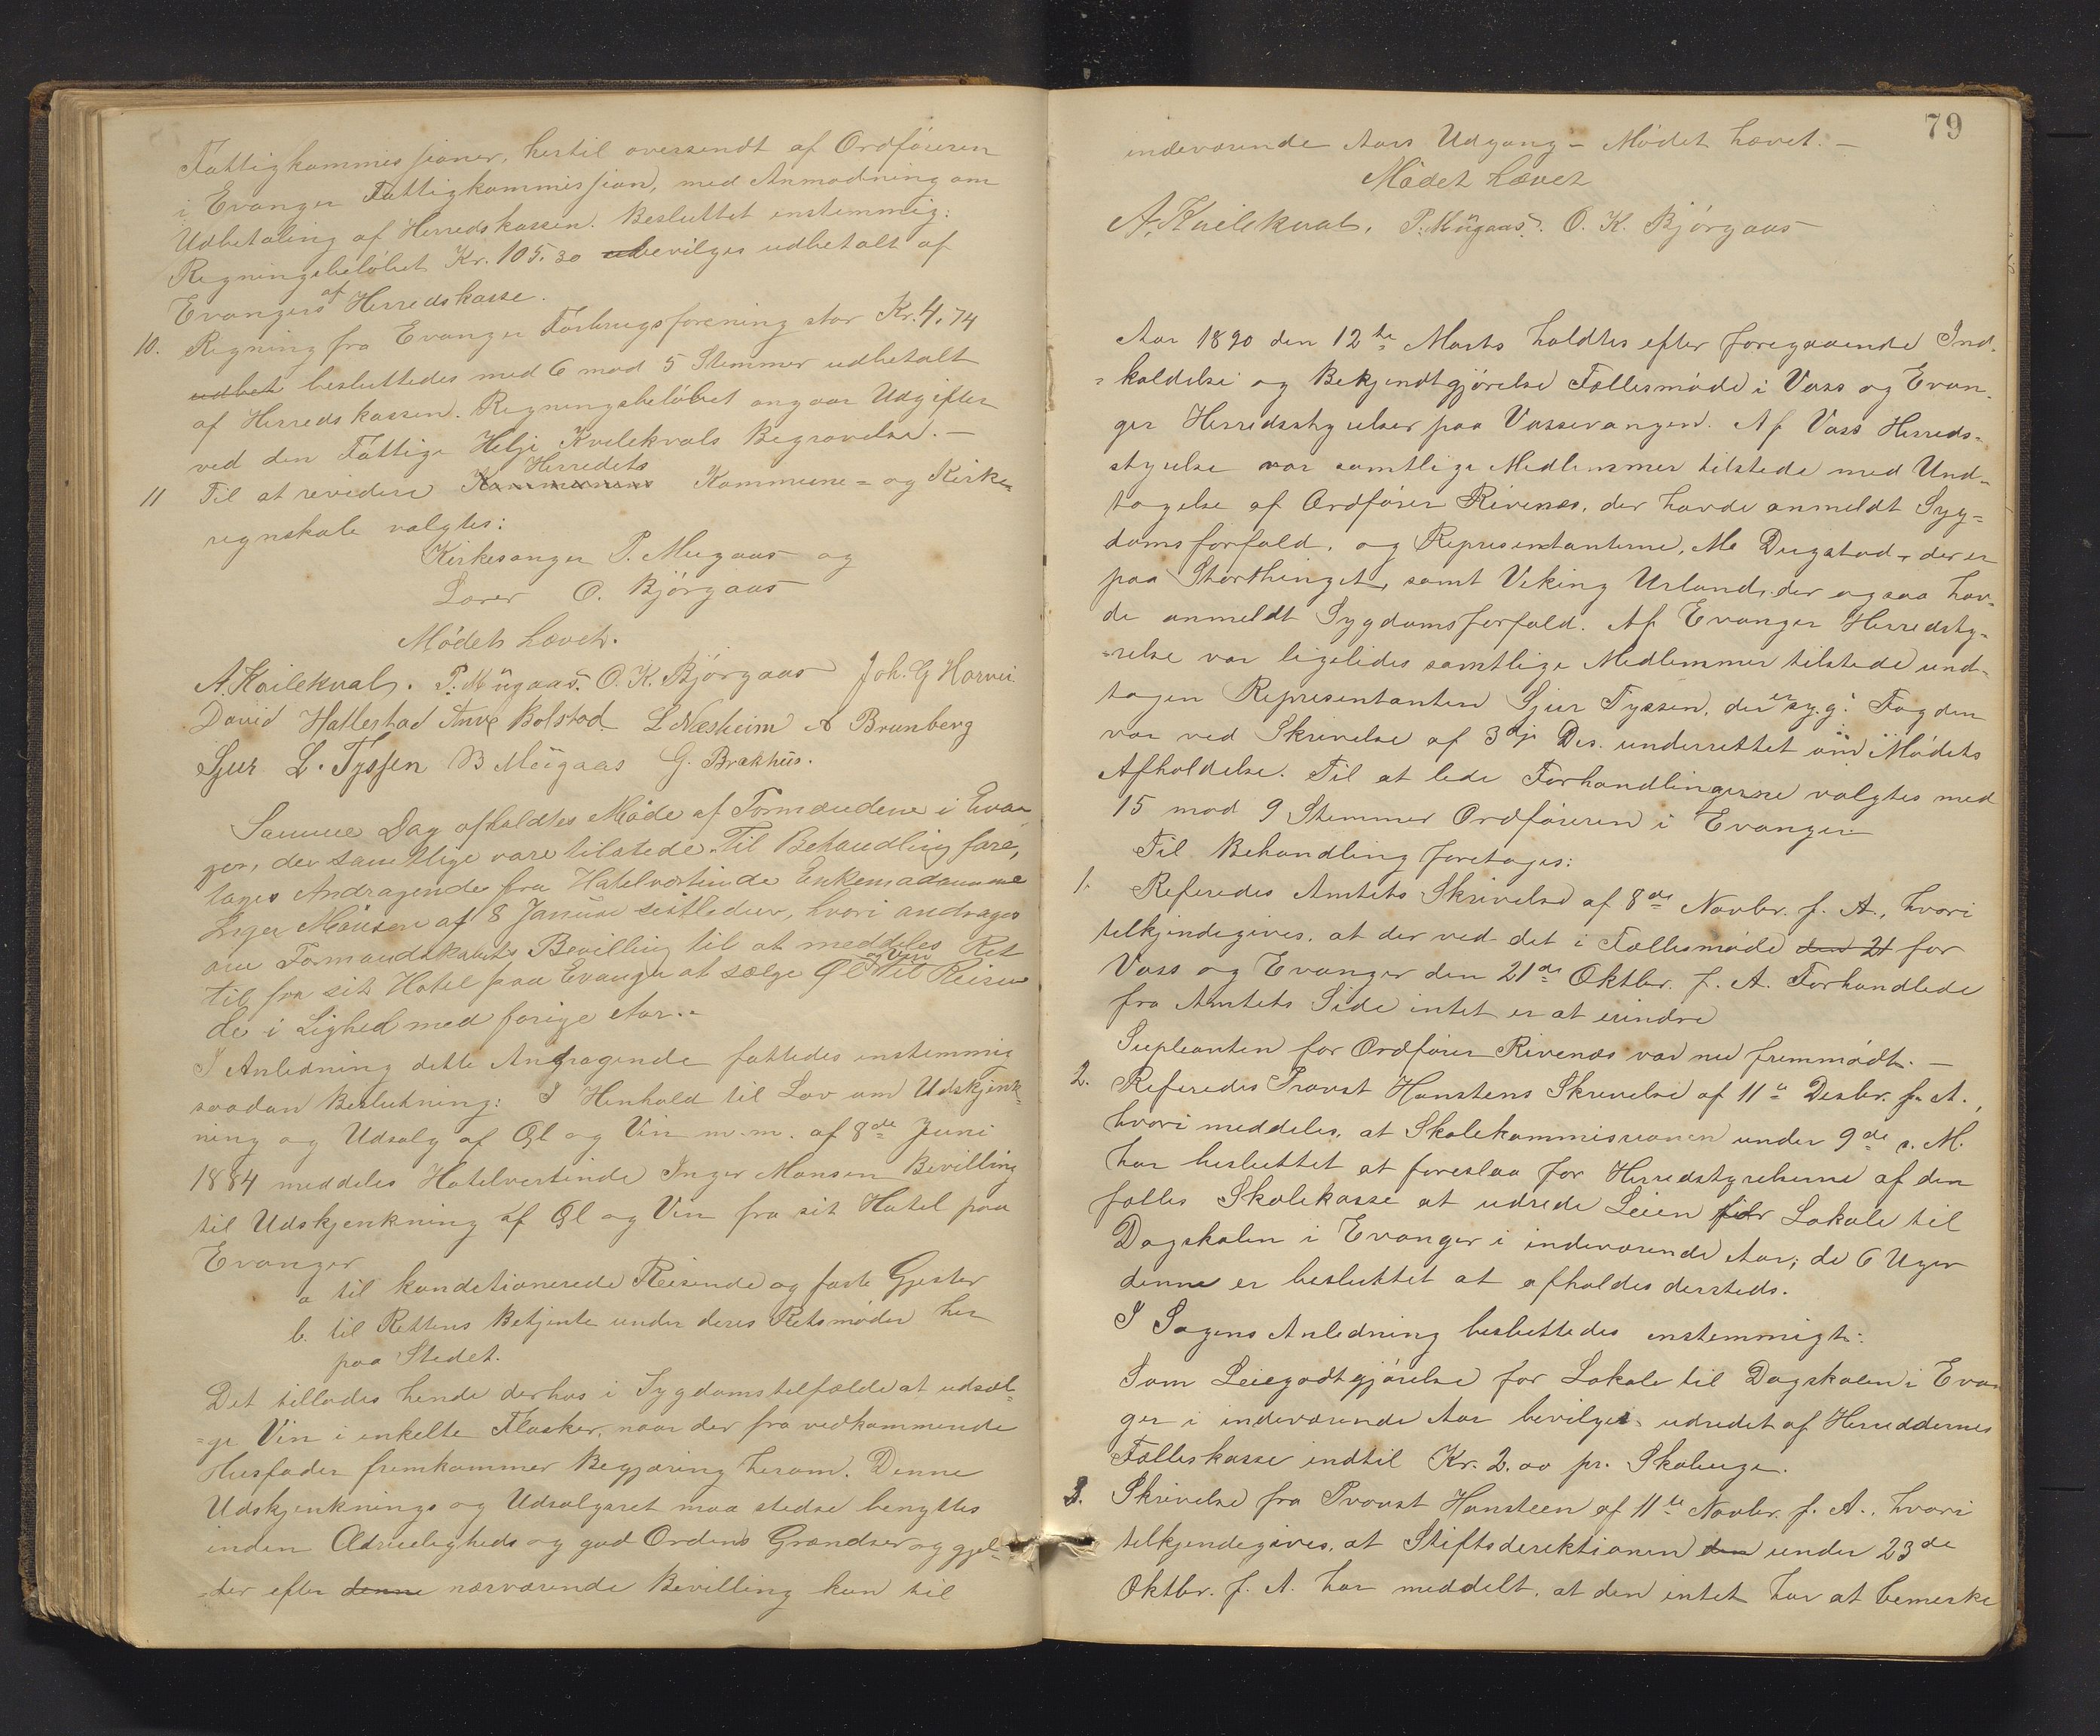 Fattigkommissioner, hertil oversendt af Ordföreren
i Evanger Fattigkommission, med Anmodning om
Udbetaling af Herredskassen. Besluttet enstemmig:
Regningsbelöbet Kr. 105.30 bevilges udbetalt af
Evangers af Herredskasse.
10. Regning fra Evanger Forbrugsforening stor Kr. 4,74
udbet besluttedes med 6 mod 5 Stemmer udbetalt
af Herredskassen. Regningsbelöbet angaar Udgifter
ved den Fattige Helje Kvilekvals Begravelse. –
11 Til at revidere Kommunens Herredets Kommune- og Kirke-
regnskab valgtes:
Kirkesanger P. Mugaas og
Lærer O. Björgaas
Mödet hævet.
A. Kvilekval. P. Mügaas. O. K. Björgaas Joh. G Horvei
David Hallestad Anve Bolstad L Næsheim A Brunborg
Sjur L. Tyssen B Mügaas G. Brakhus.
Samme Dag afholdtes Møde af Formændene i Evan-
ger, der samtlige vare tilstede. Til Behandling fore,
toges Andragende fra Hotelvertinde Enkemadamme
Inger Mønsen af 8 Januar sistleden, hvori andrages
om Formandskabets Bevilling til at meddeles Ret
til fra sit Hotel paa Evanger at sælge Øl og Vin til Reisen
de i Lighed med forige Aar.-
I Anledning dette Andragende fattedes enstemmig
saadan Beslutning: I Henhold til Lov om Udskjenk-
ning og Udsalg af Øl og Vin m.m. af 8de Juni
1884 meddeles Hotelvertinde Inger Monsen Bevilling
til Udskjenkning af Øl og Vin fra sit Hotel paa
Evanger
a til konditionerede Reisende og faste Gjester
b. til Rettens Betjente under deres Retsmöder her
paa Stedet.
Det tillades hende derhos i Sygdomstilfælde at udsæl-
=ge Vin i enkelte Flasker, naar der fra vedkommende
Husfader fremkommer Begjæring herom. Denne
Udskjenknings og Udsalgsret maa stedse benyttes
inden Ædrueligheds og god Ordens Grændser og gjel-
=der efter denne nærværende Bevilling kun til
79
indeværende Aars Udgang – Mödet hævet. –
Mödet hævet
A. Kvilekval. P. Mügaas. O. K. Björgaas
Aar 1890 den 12te Marts holdtes efter foregaaende Ind-
=kaldelse og Bekjendtgjörelse Fællesmöde i Voss og Evan-
ger Herredsstyrelser paa Vossevangen. Af Voss Herreds-
styrelse var samtlige Medlemmer tilstede med Und-
tagelse af Ordförer Rivenes, der havde anmeldt Syg-
domsforfald, og Representanterne, Me Dugstad, der er
paa Storthinget, samt Viking Urland, der ogsaa hav-
de anmeldt Sygdomsforfald. Af Evanger Herredsty-
=relse var ligeledes samtlige Medlemmer tilstede und-
tagen Representanten Sjur Tyssen, der er syg. Fogden
var ved Skrivelse af 3dje Ds. underrettet om Mödets
Afholdelse. Til at lede Forhandlingerne valgtes med
15 mod 9 Stemmer Ordföreren i Evanger.
Til Behandling foretoges:
1. Referedes Amtets Skrivelse af 8de Novbr. f. A., hvori
tilkjendegives, at der ved det i Fællesmöde den 21 for
Voss og Evanger den 21de Oktbr. f. A. Forhandlede
fra Amtets Side intet er at erindre
Supleanten for Ordförer Rivenæs var nu fremmödt. –
2. Referedes Provst Hanstens Skrivelse af 11te Desbr. f. A.,
hvori meddeles, at Skolekommissionen under 9de s. M.
har besluttet at foreslaa for Herredstyrelserne af den
fælles Skolekasse at udrede Leien for Lokale til
Dagskolen i Evanger i indeværende Aar, de 6 Uger
denne er besluttet at afholdes dersteds.
I Sagens Anledning besluttedes enstemmigt:
Som Leiegodtgjörelse for Lokale til Dagskolen i Evan
ger i indeværende Aar bevilges udredet af Herreddernes
Fælleskasse indtil Kr. 2.00 pr. Skoleuge.
3. Skrivelse fra Provst Hansteen af 11te Novbr. f. A., hvori
tilkjendegives, at Stiftsdirektionen den under 23de
Oktbr. f. A. har meddelt, at den intet har at bemerke